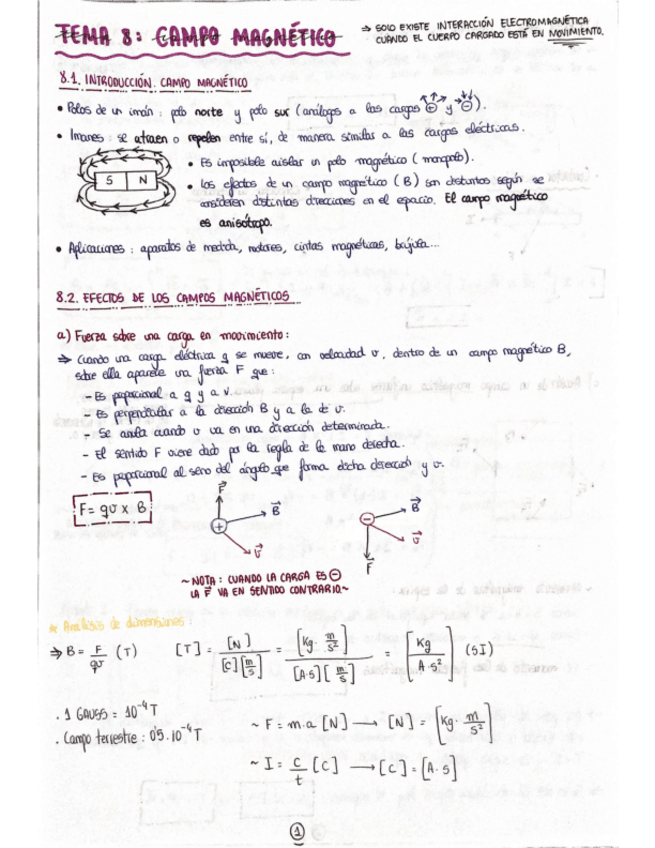 TEMA 8: CAMPO MAGNÉTICO
⇒ SOLO EXISTE INTERACCIÓN ELECTROMAGNÉTICA
CUANDO EL CUERPO CARGADO ESTÁ EN MOVIMIENTO.
8.1. INTRODUCCIÓN. CAMPO MAGNÉTICO
• Polos de un imán: polo norte y polo sur (análogos a las cargas ⊕ y ⊖).
• Imanes: se atraen o repelen entre sí, de manera similar a las cargas eléctricas.
S N
• Es imposible aislar un polo magnético (monopolo).
• Los efectos de un campo magnético (B) son distintos según se
consideren distintas direcciones en el espacio. El campo magnético
es anisótropo.
• Aplicaciones: aparatos de medida, motores, cintas magnéticas, brújula...
8.2. EFECTOS DE LOS CAMPOS MAGNÉTICOS
a) Fuerza sobre una carga en movimiento:
⇒ Cuando una carga eléctrica q se mueve, con velocidad v, dentro de un campo magnético B,
sobre ella aparece una fuerza F que:
- Es proporcional a q y a v.
- Es perpendicular a la dirección B y a la de v.
- Se anula cuando v va en una dirección determinada.
- El sentido F viene dado por la regla de la mano derecha.
- Es proporcional al seno del ángulo que forma dicha dirección y v.
F = qv x B
F⃗ + B⃗ v⃗
− B⃗ v⃗ F⃗
~ NOTA: CUANDO LA CARGA ES ⊖
LA F⃗ VA EN SENTIDO CONTRARIO ~
* Análisis de dimensiones:
⇒ B = F/qv (T) [T] = [N]/[C][m/s] = [Kg · m/s²]/[A·s][m/s] = [Kg/A·s²] (SI)
. 1 GAUSS = 10⁻⁴ T
. Campo terrestre: 0'5·10⁻⁴ T
~ F = m·a [N] → [N] = [Kg · m/s²]
~ I = C/t [C] → [C] = [A·s]
1